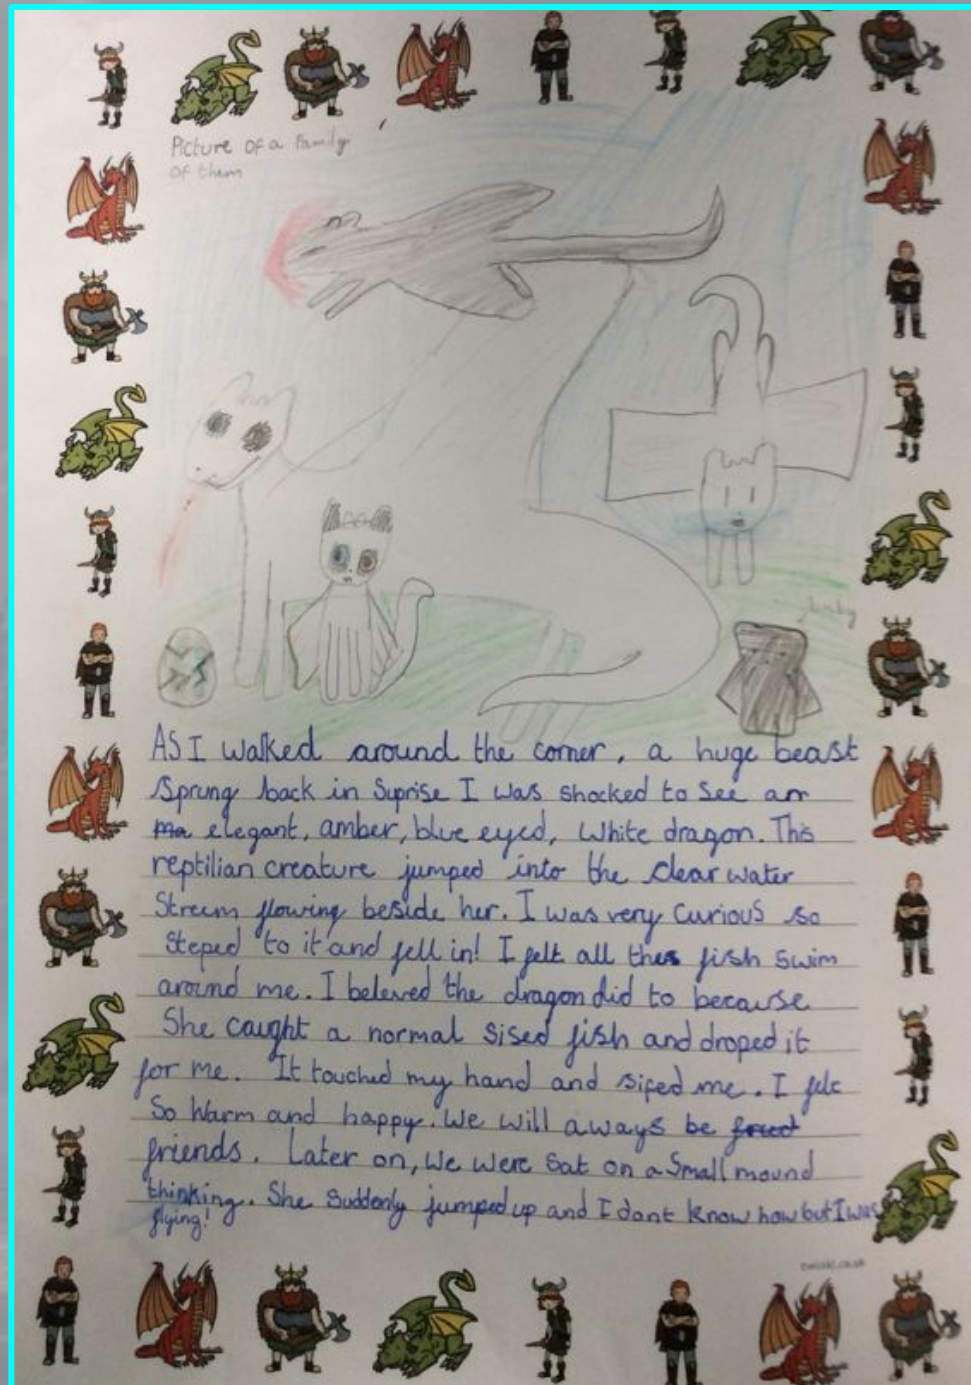 Picture of a family
of them
baby
As I walked around the corner, a huge beast
sprung back in suprise I was shocked to see an
ma elegant, amber, blue eyed, white dragon. This
reptilian creature jumped into the clear water
streem flowing beside her. I was very curious so
steped to it and fell in! I felt all thes fish swim
around me. I beleved the dragon did to because
She caught a normal sised fish and droped it
for me. It touched my hand and sifed me. I felt
so warm and happy. We will aways be
friends. Later on, we were sat on a small mound
thinking. She suddenly jumped up and I dont know how but I was
flying!
twinkl.co.uk